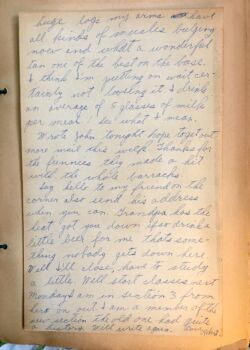 huge logs my arms have
all kinds of muscles bulging
now and what a wonderful
tan one of the best on the base.
I think I'm putting on wait cer-
tainly not loosing it I drink
on average of 5 glasses of milk
per meal! See what I mean.
Wrote John tonight hope to get out
more mail this week. Thanks for
the funnies they made a hit
with the whole barracks.
Say hello to my friend on the
corner also send his address
when you can. Grandpa has the
heat got you down if so drink a
little beer for me thats some-
thing nobody gets down here.
Well I'll close, have to study
a little. Well start classes next
Monday am in section 3 from
here on out. I am a member of the
new section the old one had quite
a history. Will write again.